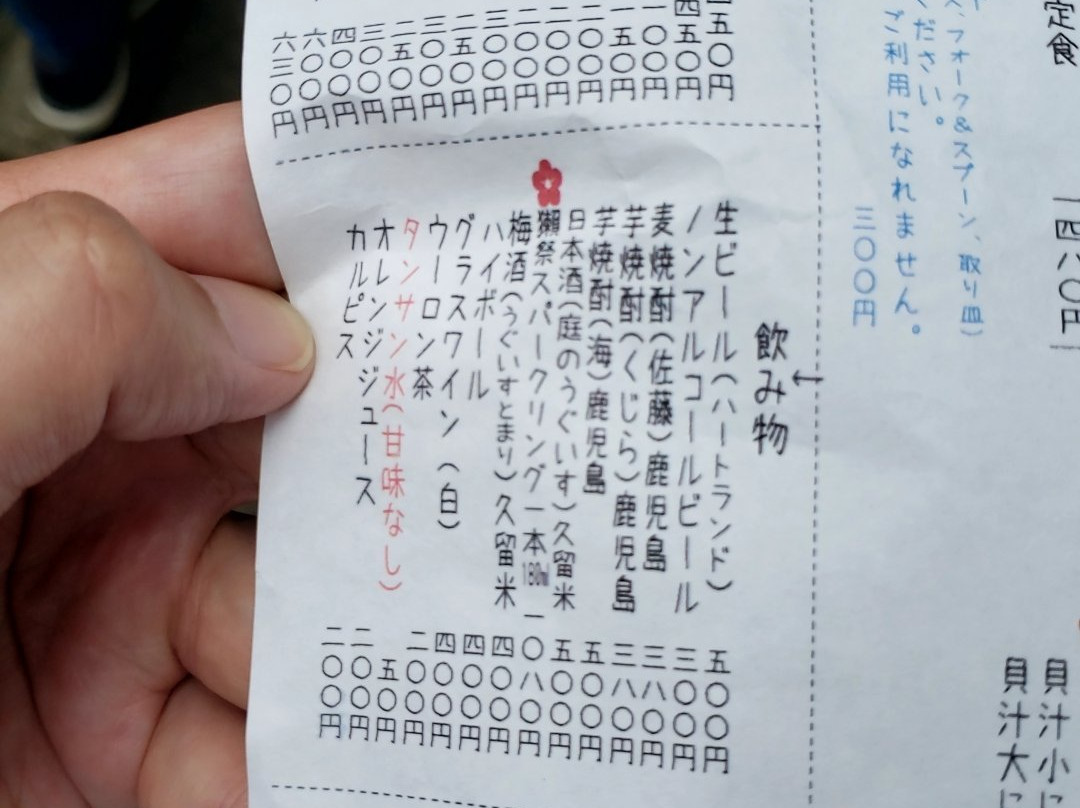 定食
一四八〇円
貝汁小
貝汁大
フォーク&スプーン、取り皿)
ください。
ご利用になれません。
三〇〇円
五〇円
四五〇円
一〇〇円
一五〇円
二〇〇円
二〇〇円
三〇〇円
二五〇円
三〇〇円
二五〇円
三〇〇円
四〇〇円
六〇〇円
六三〇円
飲み物
生ビール(ハートランド) 五〇〇円
ノンアルコールビール 三〇〇円
麦焼酎(佐藤)鹿児島 三八〇円
芋焼酎(くじら)鹿児島 三八〇円
芋焼酎(海)鹿児島 五〇〇円
日本酒(庭のうぐいす)久留米 五〇〇円
獺祭スパークリング一本180ml 一〇八〇円
梅酒(うぐいすとまり)久留米 四〇〇円
ハイボール 四〇〇円
グラスワイン(白) 四〇〇円
ウーロン茶 二〇〇円
タンサン水(甘味なし) 五〇円
オレンジジュース 二〇〇円
カルピス 二〇〇円